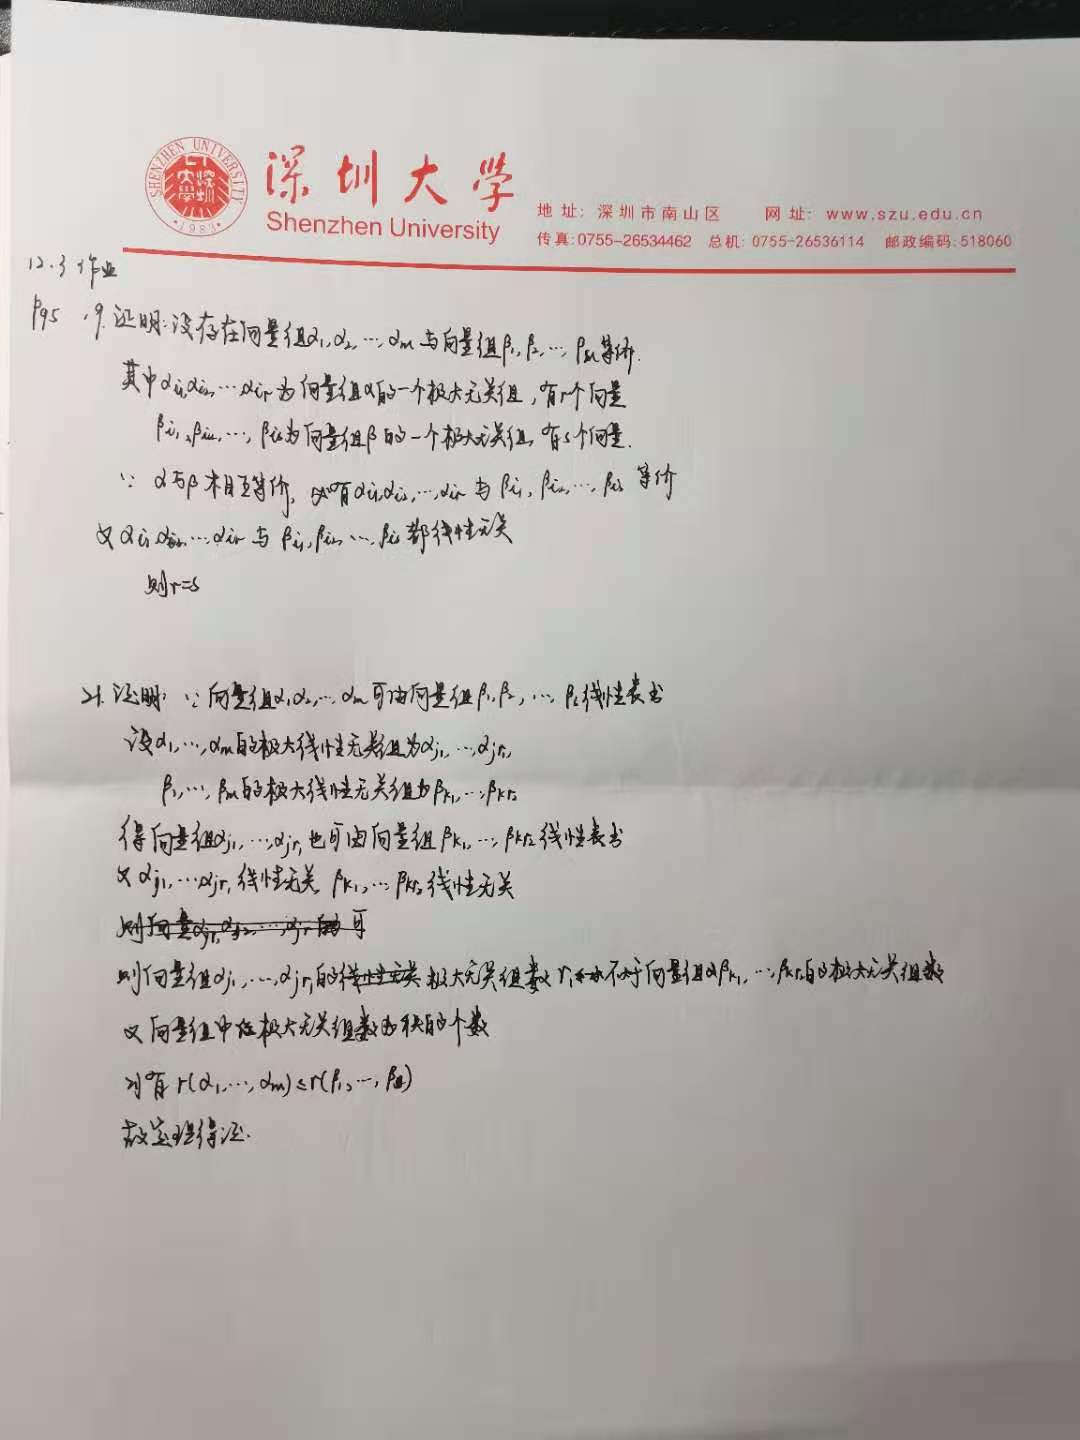 SHENZHEN UNIVERSITY
1983
深圳大学
Shenzhen University
地址: 深圳市南山区 网址: www.szu.edu.cn
传真:0755-26534462 总机: 0755-26536114 邮政编码:518060
12.3 作业
P95 .9. 证明: 设存在向量组α1, α2, …, αm 与向量组β1, β2, …, βm等价.
其中αi1,αi2,…αir 为向量组α的一个极大无关组, 有r个向量
βi1,βi2,…, βis为向量组β的一个极大无关组, 有s个向量.
∵ α与β相互等价, 必有αi1,αi2,…,αir 与 βi1, βi2,…, βis 等价
又αi1,αi2,…αir 与 βi1,βi2,…,βis 都线性无关
则r=s
21. 证明: ∵ 向量组α1,α2,…αm可由向量组β1,β2, …, βs线性表出
设α1,…,αm的极大线性无关组为αj1,…,αjr1
β1,…,βm的极大线性无关组为βk1,…,βkr2
得向量组αj1,…,αjr1也可由向量组βk1,…,βkr2线性表出
又αj1,…αjr1线性无关, βk1,…βkr2线性无关
则向量αj1,αj2,…,αjr的可
则向量组αj1,…,αjr1的线性无关极大无关组数r1不大于向量组βk1,…,βkr2的极大无关组数
又向量组中极大无关组数为秩的个数
则有r(α1,…,αm)≤r(β1,…,βs)
故定理得证.